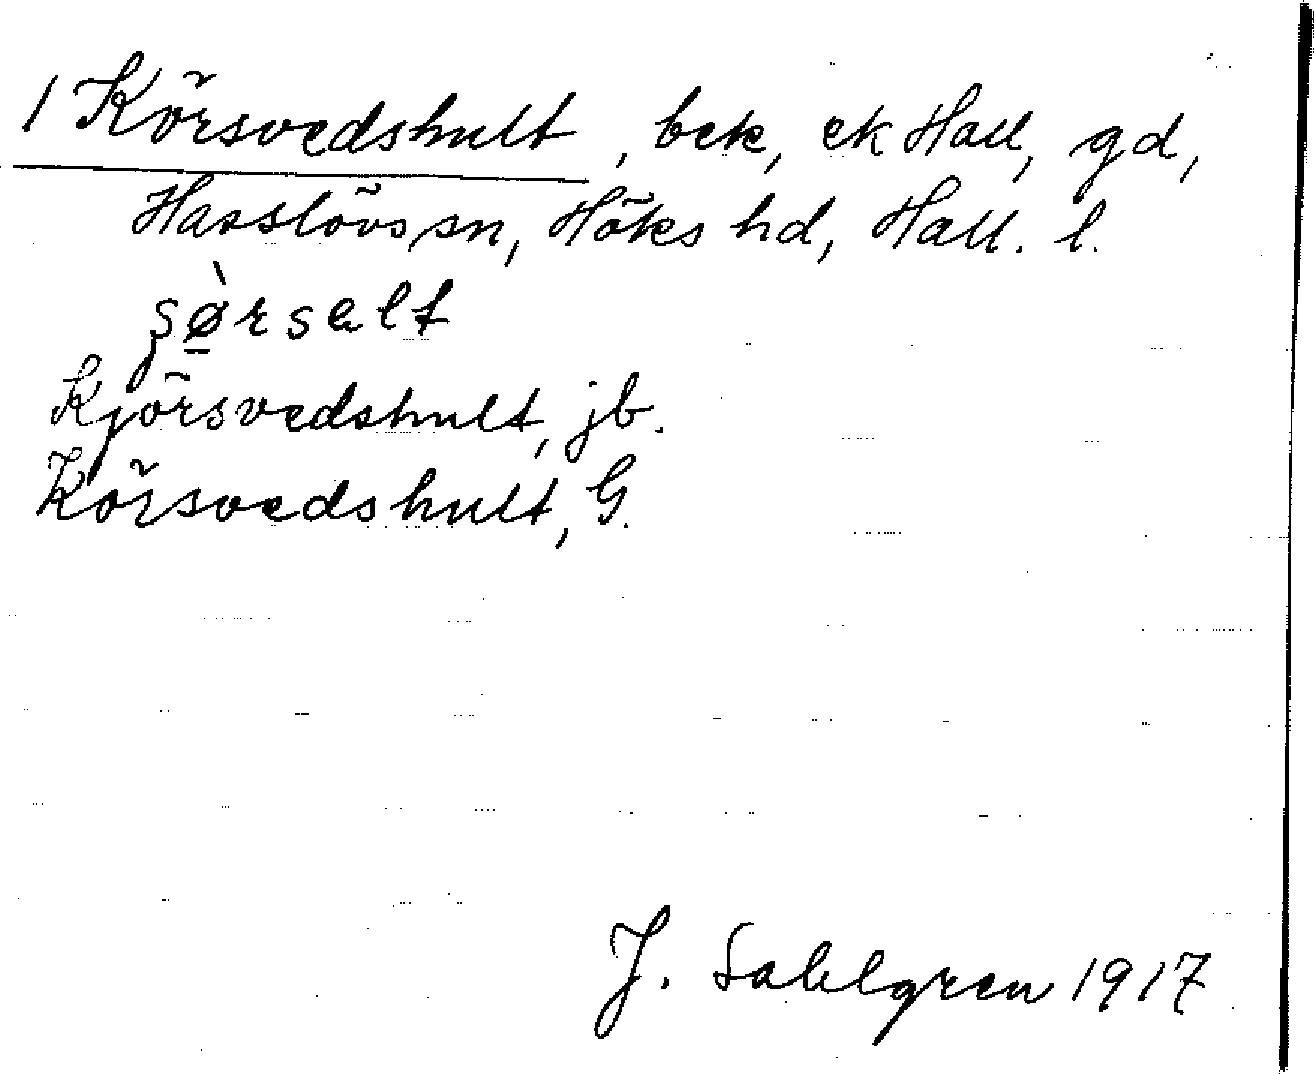 1 Körsvedshult, bek, ek Hall, gd,
Hasslövs sn, Höks hd, Hall. l.
ʂø̠̀rsalt
Kjörsvedshult, jb.
Körsvedshult, G.
J. Sahlgren 1917